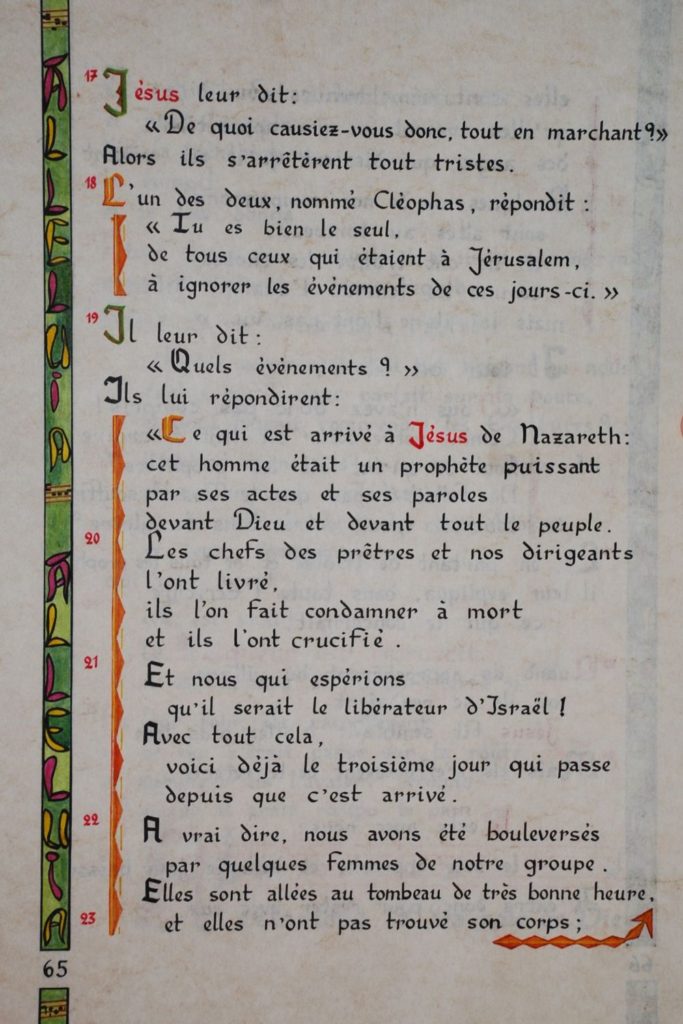 ALLELUIA ALLELUIA
17 Jésus leur dit:
« De quoi causiez-vous donc, tout en marchant ? »
Alors ils s'arrêtèrent tout tristes.
18 L'un des deux, nommé Cléophas, répondit :
« Tu es bien le seul,
de tous ceux qui étaient à Jérusalem,
à ignorer les événements de ces jours-ci. »
19 Il leur dit :
« Quels événements ? »
Ils lui répondirent:
« Ce qui est arrivé à Jésus de Nazareth:
cet homme était un prophète puissant
par ses actes et ses paroles
devant Dieu et devant tout le peuple.
20 Les chefs des prêtres et nos dirigeants
l'ont livré,
ils l'on fait condamner à mort
et ils l'ont crucifié .
21 Et nous qui espérions
qu'il serait le libérateur d'Israël !
Avec tout cela,
voici déjà le troisième jour qui passe
depuis que c'est arrivé .
22 A vrai dire, nous avons été bouleversés
par quelques femmes de notre groupe .
Elles sont allées au tombeau de très bonne heure,
23 et elles n'ont pas trouvé son corps ;
65